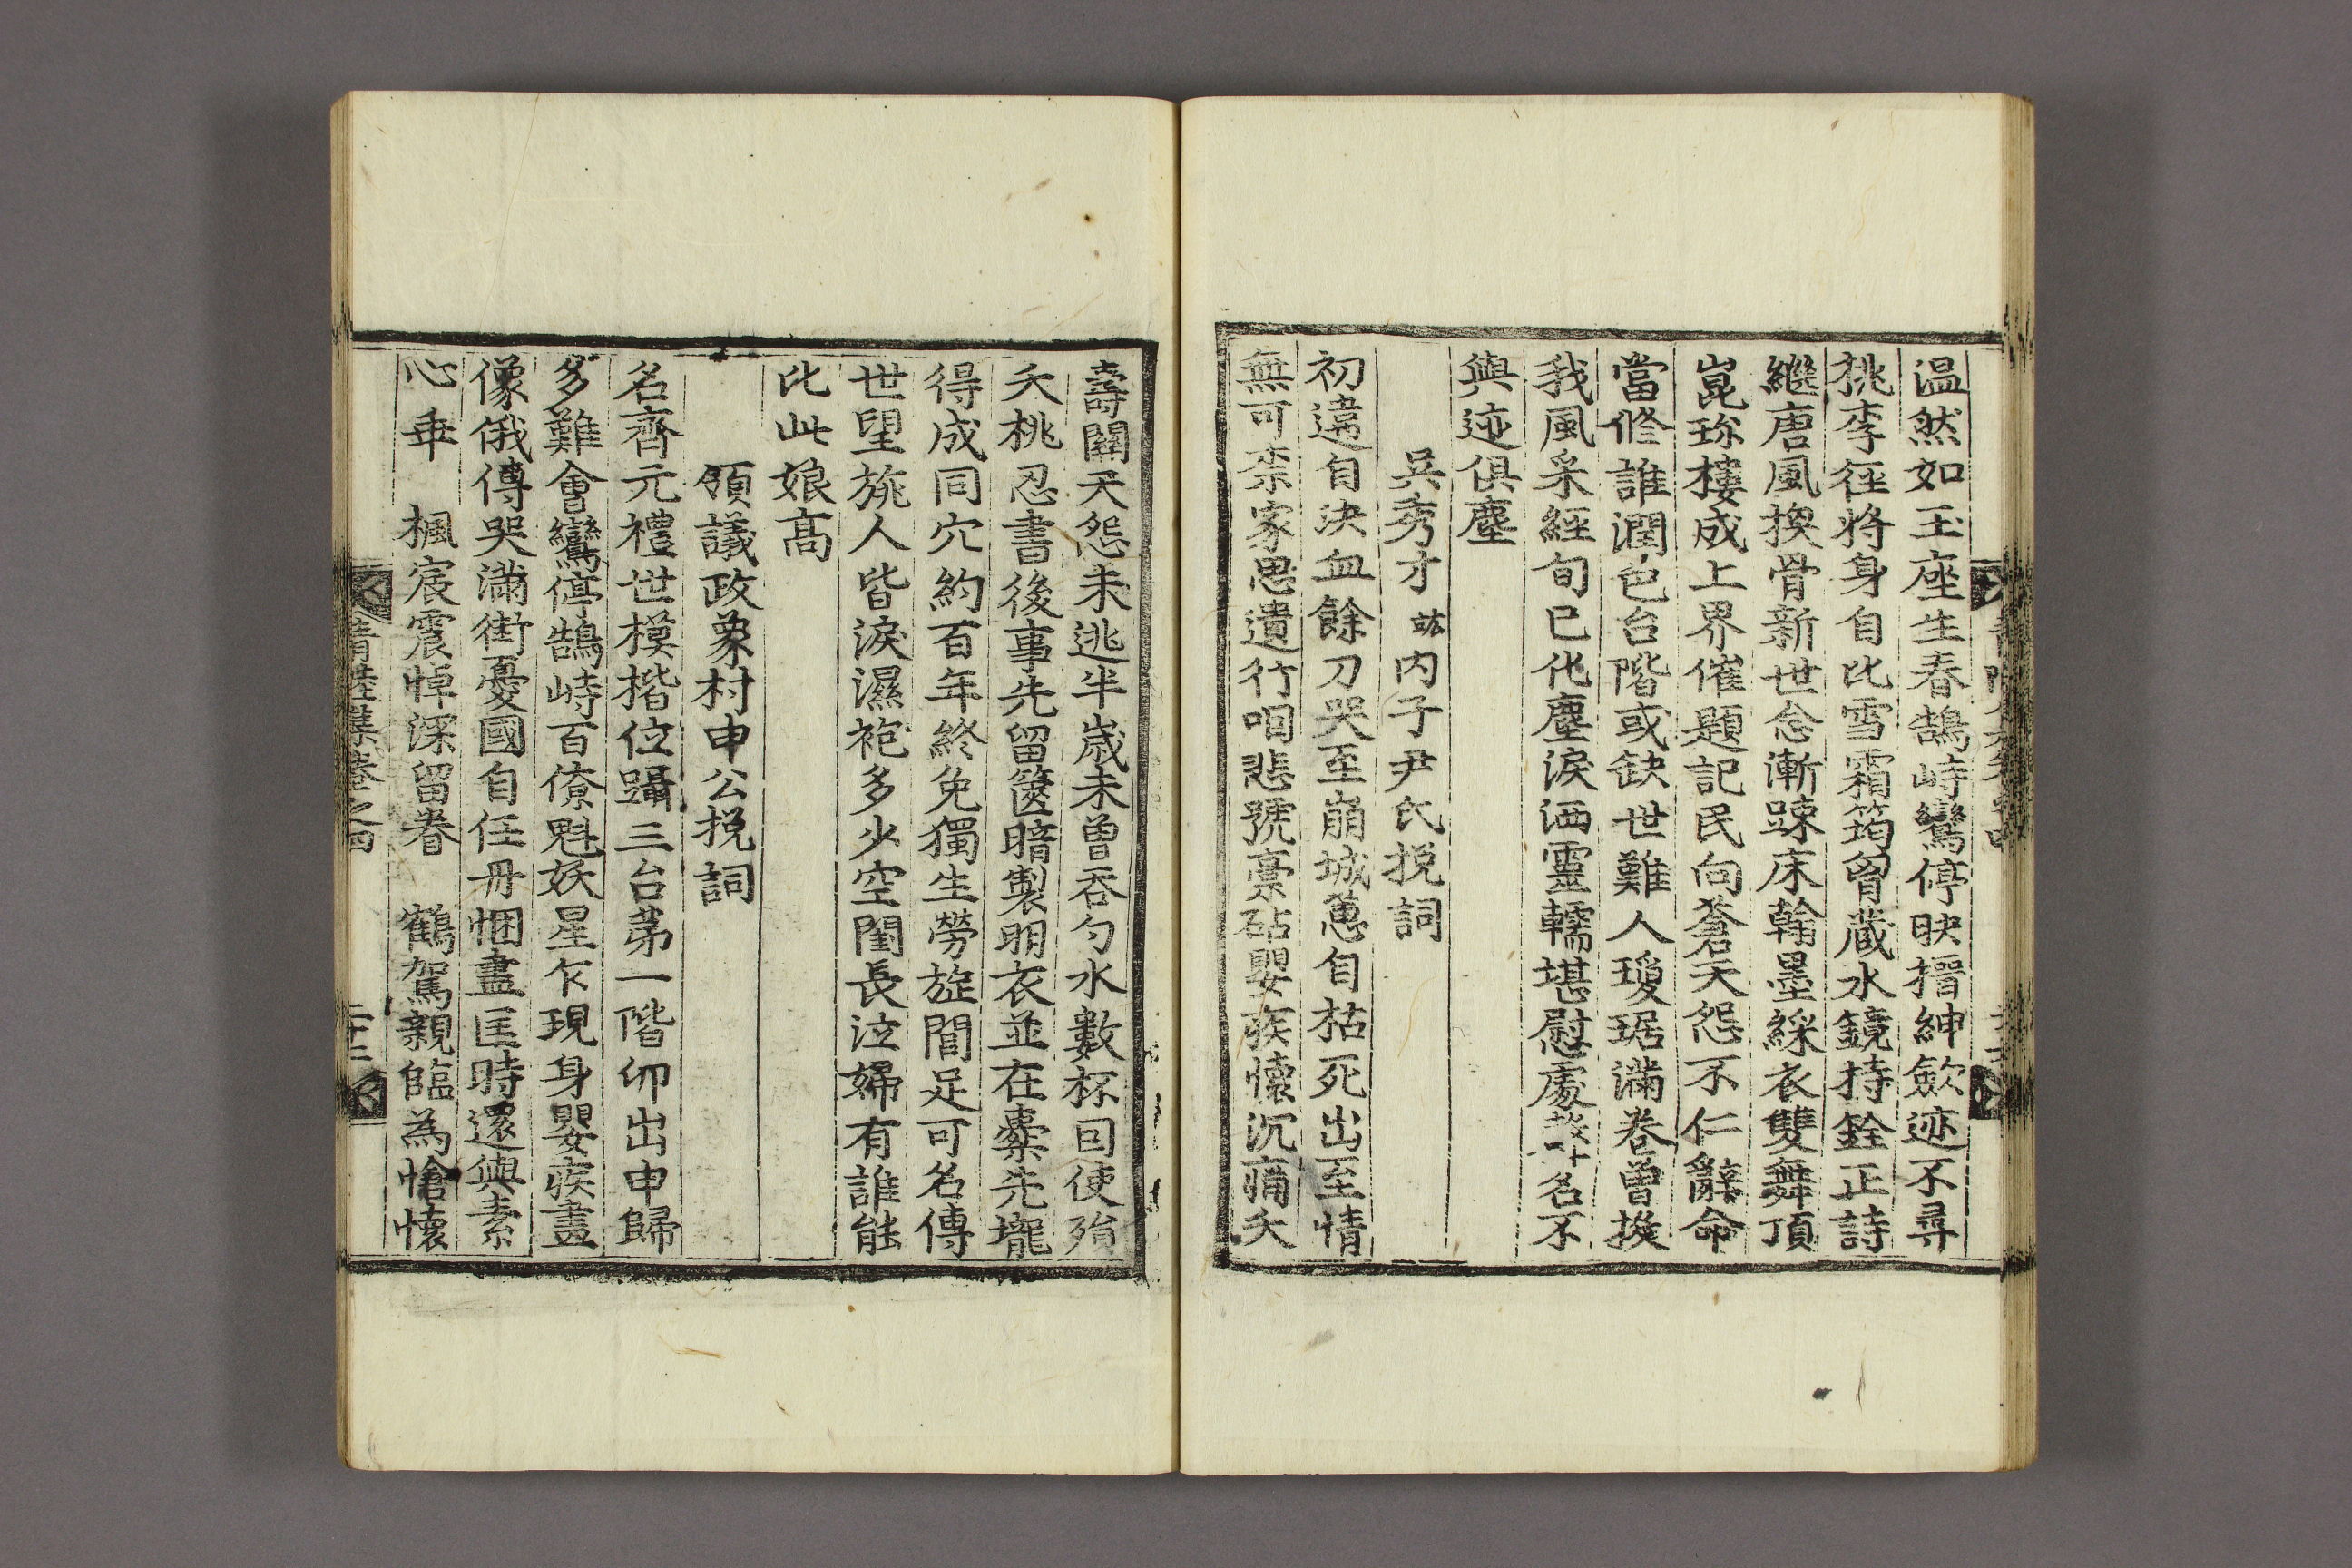 温然如玉座生春鵠峙鸞停映搢紳歛迹不尋
桃李徑將身自比雪霜筠胷藏水鏡持銓正詩
繼唐風換骨新世念漸踈床翰墨綵衣雙舞頂
崑珎樓成上界催題記民向蒼天怨不仁辭命
當修誰潤色台階或缺世難人瓊琚滿卷曾投
我風采經旬已化塵淚洒靈轜堪慰處 名不
與迹俱塵
吳秀才 内子尹氏挽詞
初違自决血餘刀哭至崩城蔥自枯死出至情
無可柰家思遺行咽悲號藁砧嬰疾懷沉痛夭
壽關天怨未逃半歲未曾吞勺水數杯回使殆
夭桃忍書後事先留篋暗製明衣並在櫜先壠
得成同穴約百年終免獨生勞旋閭足可名傳
世望旐人皆淚濕袍多少空閨長泣婦有誰能
比此娘高
領議政象村申公挽詞
名齊元禮世模楷位躡三台第一階卯出申歸
多難會鸞停鵠峙百僚魁妖星乍現身嬰疾畫
像俄傳哭滿街憂國自任丹悃盡匡時還與素
心乖 楓宸震悼深留眷 鶴駕親臨為愴懷
清陸集卷之四 二十二